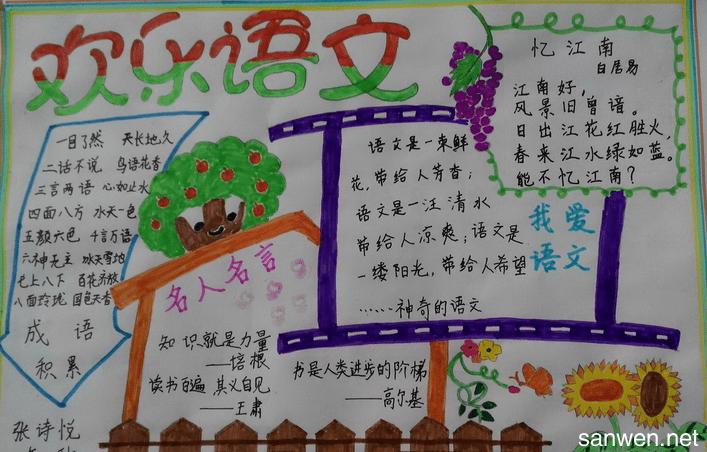 欢乐语文
一目了然 天长地久
二话不说 鸟语花香
三言两语 心如止水
四面八方 水天一色
五颜六色 千言万语
六神无主 冰天雪地
七上八下 百花齐放
八面玲珑 国色天香
成语
积累
张诗悦
名人名言
知识就是力量
——培根
读书百遍 其义自见
——王肃
书是人类进步的阶梯
——高尔基
语文是一束鲜
花,带给人芳香;
语文是一汪清水
带给人凉爽;语文是
一缕阳光,带给人希望
……神奇的语文
我爱
语文
忆江南
白居易
江南好,
风景旧曾谙。
日出江花红胜火,
春来江水绿如蓝。
能不忆江南?
sanwen.net